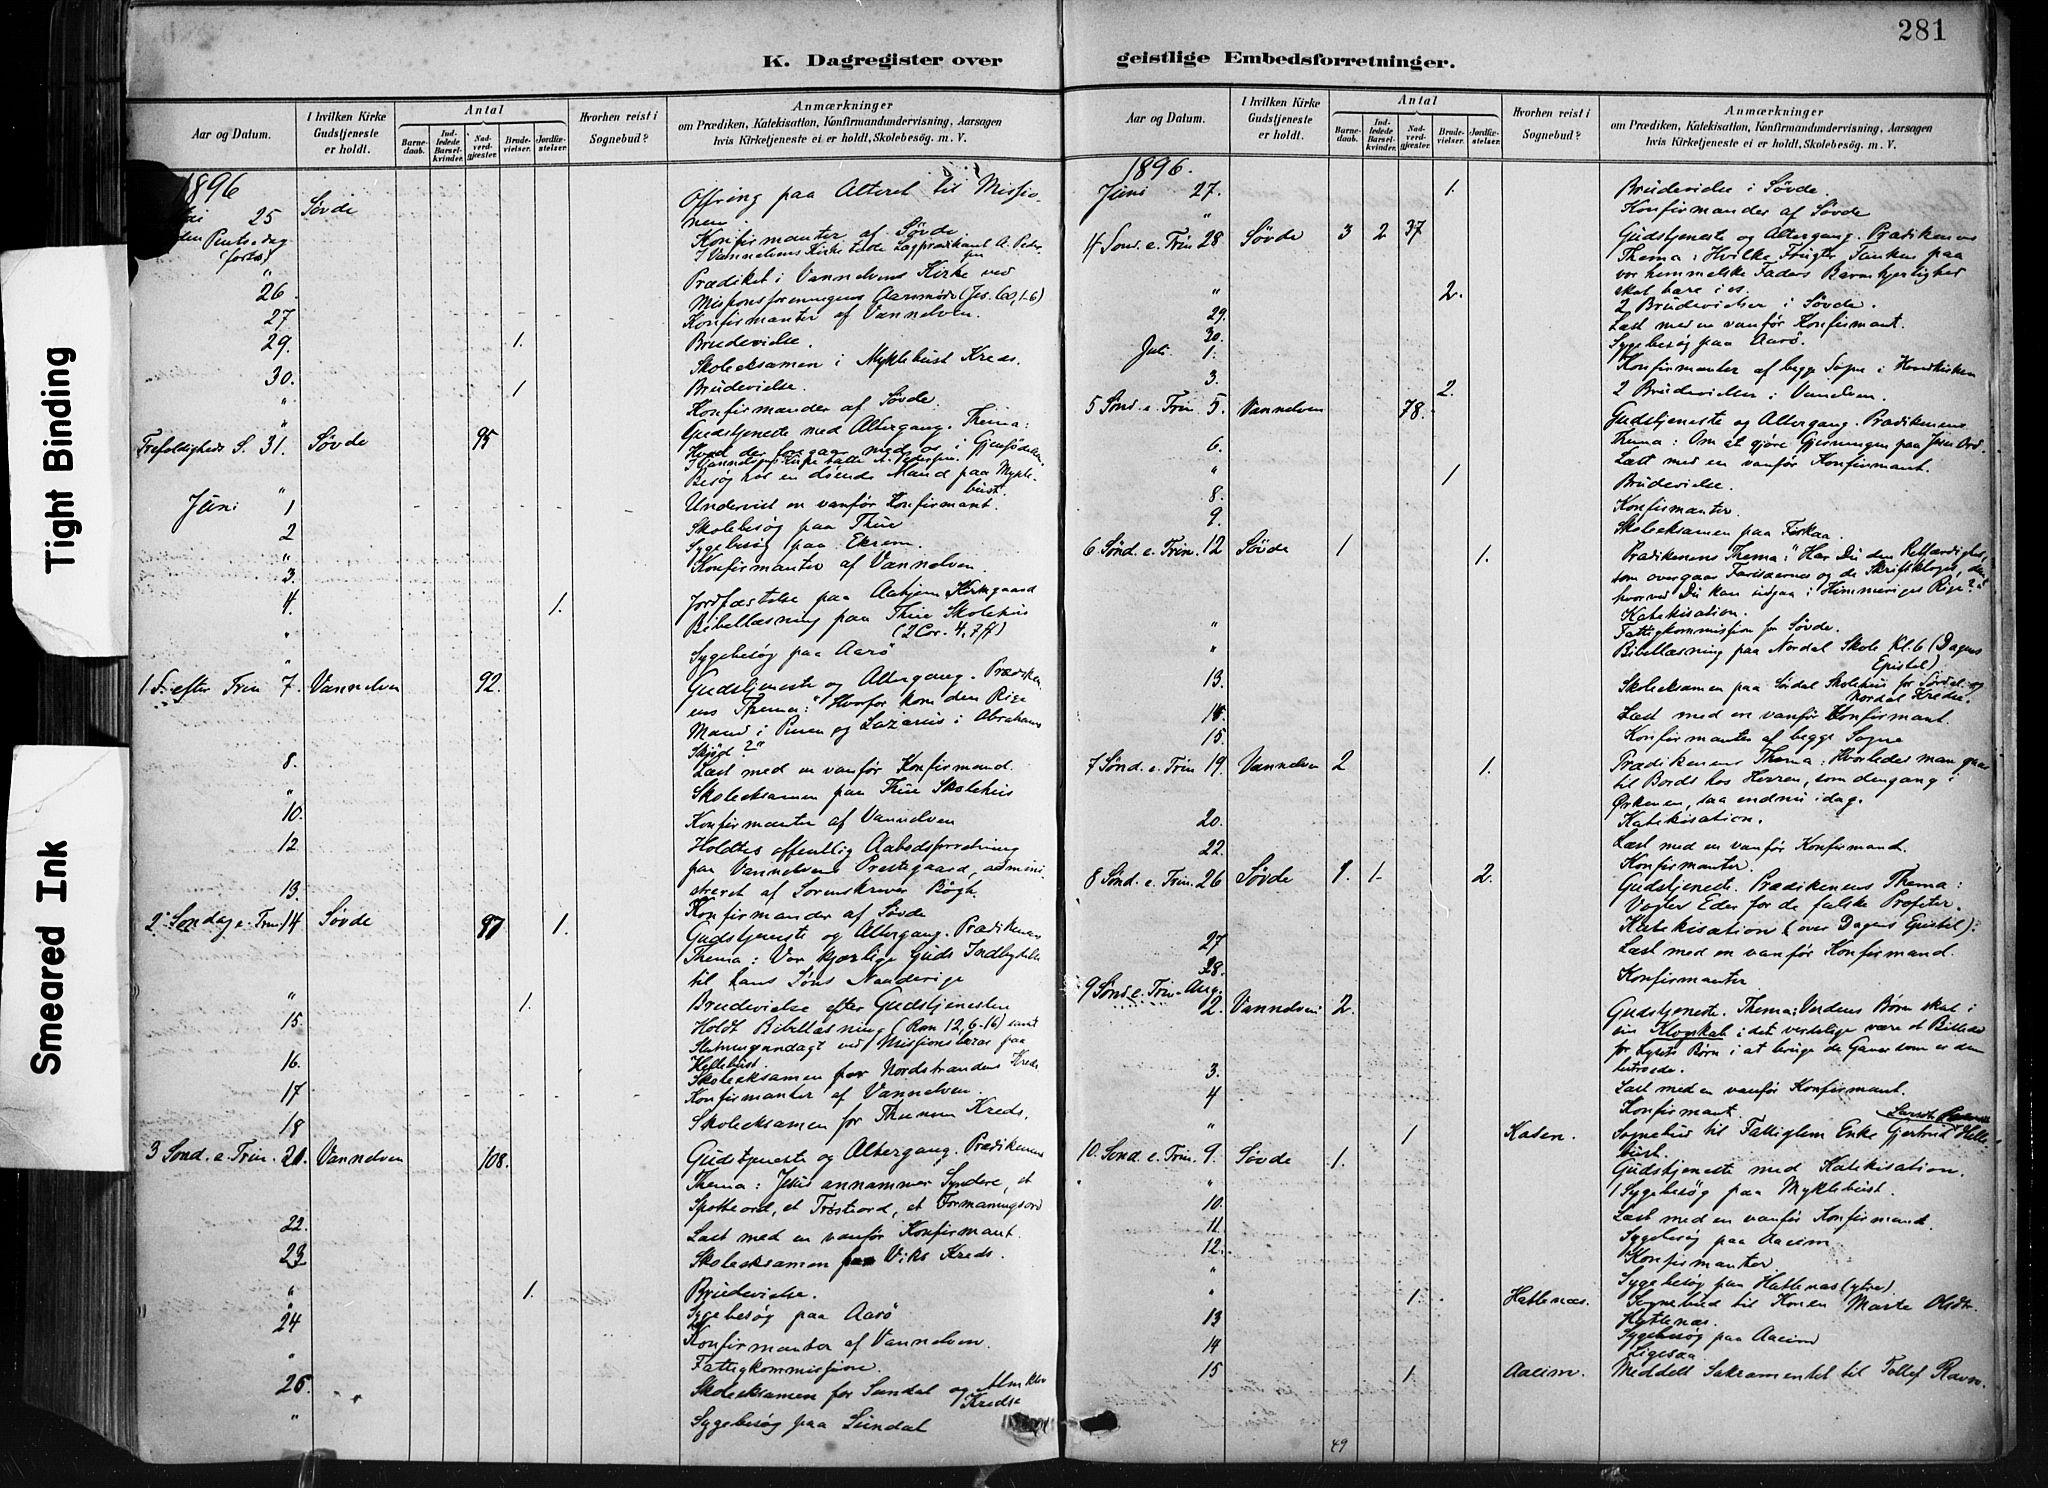 281
K. Dagregister over geistlige Embedsforretninger.
Aar og Datum.
I hvilken Kirke Gudstjeneste er holdt.
Antal
Barnedaab.
Indledede Barselkvinder.
Nadverdgjester.
Brudevielser.
Jordfæstelser.
Hvorhen reist i Sognebud?
Anmærkninger
om Prædiken, Katekisation, Konfirmandundervisning, Aarsagen
hvis Kirketjeneste ei er holdt, Skolebesøg. m. V.
1896
25 Søvde Offring paa Alteret til Missionen.
Pintsedag Konfirmanter af Søvde.
(forts.) I Vannelvens Kirke talde Lægprædikant A. Pedersen
" Prædiket i Vannelvens Kirke ved
26. Missionsforeningens Aarsmøde (Jes. 60, 1-6)
27 Konfirmanter af Vannelven.
29. 1. Brudevielse.
Skoleeksamen i Myklebust Kreds.
30. 1 Brudevielse.
" Konfirmander af Søvde.
Trefoldigheds S. 31. Søvde 95 Gudstjeneste med Altergang. Thema:
Hvad der foregaar med os i Gjenfødelsen.
Besøg hos en døende Mand paa Myklebust.
Juni 1 Undervist en vanfør Konfirmant.
2 Skolebesøg paa Thue
" Sygebesøg paa Ekrem.
3. Konfirmanter af Vannelven.
4. 1. Jordfæstelse paa Aahjem Kirkegaard
" Bibellæsning paa Thue Skolehus
(2 Cor. 4, 7 ff)
" Sygebesøg paa Aarø
1 S. efter Trin 7. Vannelven 92. Gudstjeneste og Altergang. Prædikenens
Thema: "Hvorfor kom den Rige
Mand i Pinen og Lazarus i Abrahams
Skjød?"
8. Læst med en vanfør Konfirmand.
" Skoleeksamen paa Thue Skolehus
10. Konfirmanter af Vannelven
12. Holdtes offentlig Aabodsforretning
paa Vannelvens Prestegaard, administreret
13. af Sorenskriver Bøgh.
Konfirmander af Søvde
2. Søndag e. Trin 14 Søvde 97 1. Gudstjeneste og Altergang. Prædikenens
Thema: Vor kjærlige Guds Indbydelse
til hans Søns Naaderige
" 1. Brudevielse efter Gudstjenesten
15. Holdt Bibellæsning (Rom 12, 6-16) samt
Slutningsandagt ved Missionsbazar paa
16. Skoleeksamen for Nordstrandens Kreds
17 Konfirmanter af Vannelven.
18 Skoleeksamen for Thuenum Kreds.
3 Sond. e. Trin. 21. Vannelven 108. Gudstjeneste og Altergang. Prædikenens
Thema: Jesus annammer Syndere, et
Spotteord, et Trøsteord, et Formaningsord
22. Læst med en vanfør Konfirmant.
23 Skoleeksamen Viks Kreds.
" 1. Brudevielse.
" Sygebesøg paa Aarø
24 Konfirmanter af Vannelven.
" Fattigkommission.
26. Skoleeksamen for Sundal og Almklov
Kredse
" Sygebesøg paa Sundal
Aar og Datum.
I hvilken Kirke Gudstjeneste er holdt.
Antal
Barnedaab.
Indledede Barselkvinder.
Nadverdgjester.
Brudevielser.
Jordfæstelser.
Hvorhen reist i Sognebud?
Anmærkninger
om Prædiken, Katekisation, Konfirmandundervisning, Aarsagen
hvis Kirketjeneste ei er holdt, Skolebesøg. m. V.
1896.
Juni 27. 1. Brudevielse i Søvde.
Konfirmander af Søvde
4 Sond. e. Trin 28 Søvde 3 2 37 Gudstjeneste og Altergang. Prædikenens
Thema: Hvilke Frugter Tanken paa
vor himmelske Faders Barmhjertighed
skal bære i os.
" 2. 2 Brudevielser i Søvde.
29. Læst med en vanfør Konfirmant.
30. Sygebesøg paa Aarø.
Juli 1. Konfirmanter af begge Sogne i Hovedkirken
3. 2. 2 Brudevielser i Vanelven.
5 Sond. e. Trin. 5. Vannelven 78. Gudstjeneste og Altergang. Prædikenens
Thema: Om at gjøre Gjerningen paa Jesu Ord.
6. Læst med en vanfør Konfirmant.
" 1 Brudevielse.
8. Konfirmanter.
9. Skoleeksamen paa Fiskaa.
6 Sønd. e. Trin. 12 Søvde 1 1. Prædikenens Thema: "Har Du den Retfærdighed,
som overgaar Farisæernes og de Skriftkloges, den
hvorved Du kan indgaa i Himmeriges Rige?"
Katekisation.
" Fattigkommission for Søvde.
" Bibellæsning paa Nordal Skole Kl. 6 (Dagens
Epistel)
13. Skoleeksamen paa Sørdal Skolehus for Sørdal og
Nordal Kredse.
14. Læst med en vanfør Konfirmant.
15. Konfirmanter af begge Sogne
7 Sønd. e. Trin 19. Vannelven 2 1. Prædikenens Thema: Hvorledes man gaar
til Bords hos Herren, som dengang i
Ørkenen, saa endnu idag.
Katekisation.
20. Læst med en vanfør Konfirmand.
22. Konfirmanter.
8 Sønd. e. Trin. 26 Søvde 1. 1. 2. Gudstjeneste. Prædikenens Thema:
Vogter Eder for de falske Profeter.
Katekisation (over Dagens Epistel).
27 Læst med en vanfør Konfirmand.
28. Konfirmanter
9 Sønd. e. Trin. Aug. 2. Vannelven 2. Gudstjeneste. Thema: Verdens Børn skal i
sin Klogskab i det verdslige være et Billede
for Lysets Børn i at bruge de Gaver som er dem
betroede.
3. Læst med en vanfør Konfirmant.
4 Konfirmant.
" 1 Kasen. Sognebud til Fattiglem Enke Gjertrud Hellebust.
10. Sond. e. Trin. 9. Søvde 1. Gudstjeneste med Katekisation.
" 1 Sygebesøg paa Myklebust.
10. Læst med en vanfør Konfirmand.
11. Sygebesøg paa Aaeim
12. Konfirmanter
" Sygebesøg paa Hatlenæs (ytre)
" 1. Hatlenæs. Sognebud til Konen Marte Olsdtr.
Hatlenæs.
13 Sygebesøg paa Aaeim
14 Ligesaa
15 1 Aaeim. Meddelt Sakramentet til Tollef Ravn.
49
Tight Binding
Smeared Ink